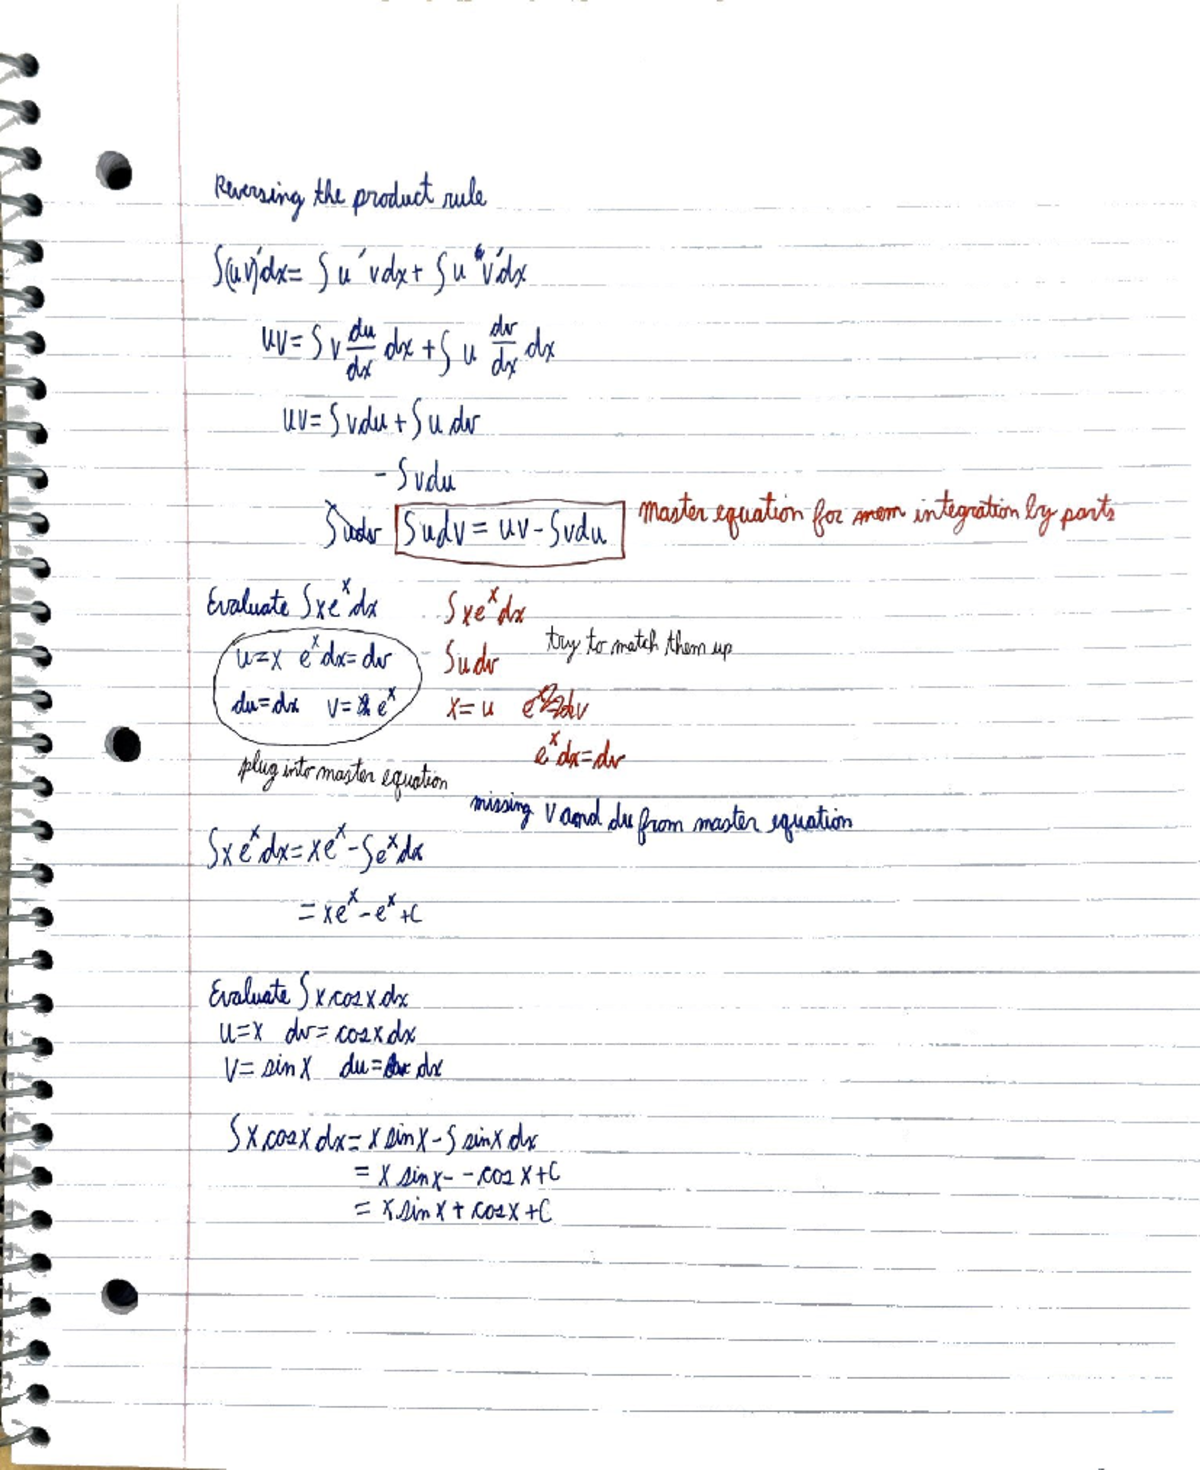 Reversing the product rule
∫(uv)'dx = ∫u'vdx + ∫u v'dx
uv = ∫v du/dx dx + ∫u dv/dx dx
uv = ∫vdu + ∫u dv
- ∫vdu
∫udv ∫udv = uv - ∫vdu master equation for mem integration by parts
Evaluate ∫xe^x dx ∫xe^x dx
try to match them up
u=x e^x dx=dv ∫udv
du=dx v= e^x x=u
e^x dx=dv
plug into master equation
missing v and du from master equation
∫xe^x dx = xe^x - ∫e^x dx
= xe^x - e^x + C
Evaluate ∫x cosx dx
u=x dv = cosx dx
v= sinx du= dx
∫x cosx dx = x sinx - ∫sinx dx
= x sinx - - cosx + C
= x sinx + cosx + C